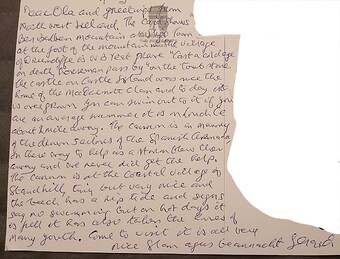 Dear Ola and greetings from
North West Ireland, The Card shows
Ben Bulben mountain
at the foot of the mountain in the village
of Drumcliffe is W B Yeats grave "Cast a cold eye
on death, horseman pass by" on the tomb stone
the castle on Castle Island was once the
home of the MacDermott Clan and to day it
is overgrown you can swim out to it if you
are an average swimmer it is
about mile away. The cannon is in memory
of the drowned sailors of the Spanish Armada
on their way to help us a storm blew them
away and we never did get the help.
The cannon is at the coastal village of
Strandhill, tiny but very nice and
the beach has a rip tide and signs
say no swimming but on hot days it
is full it has also taken the lives of
many youth. Come to visit it is all very
nice Slan agus beannacht